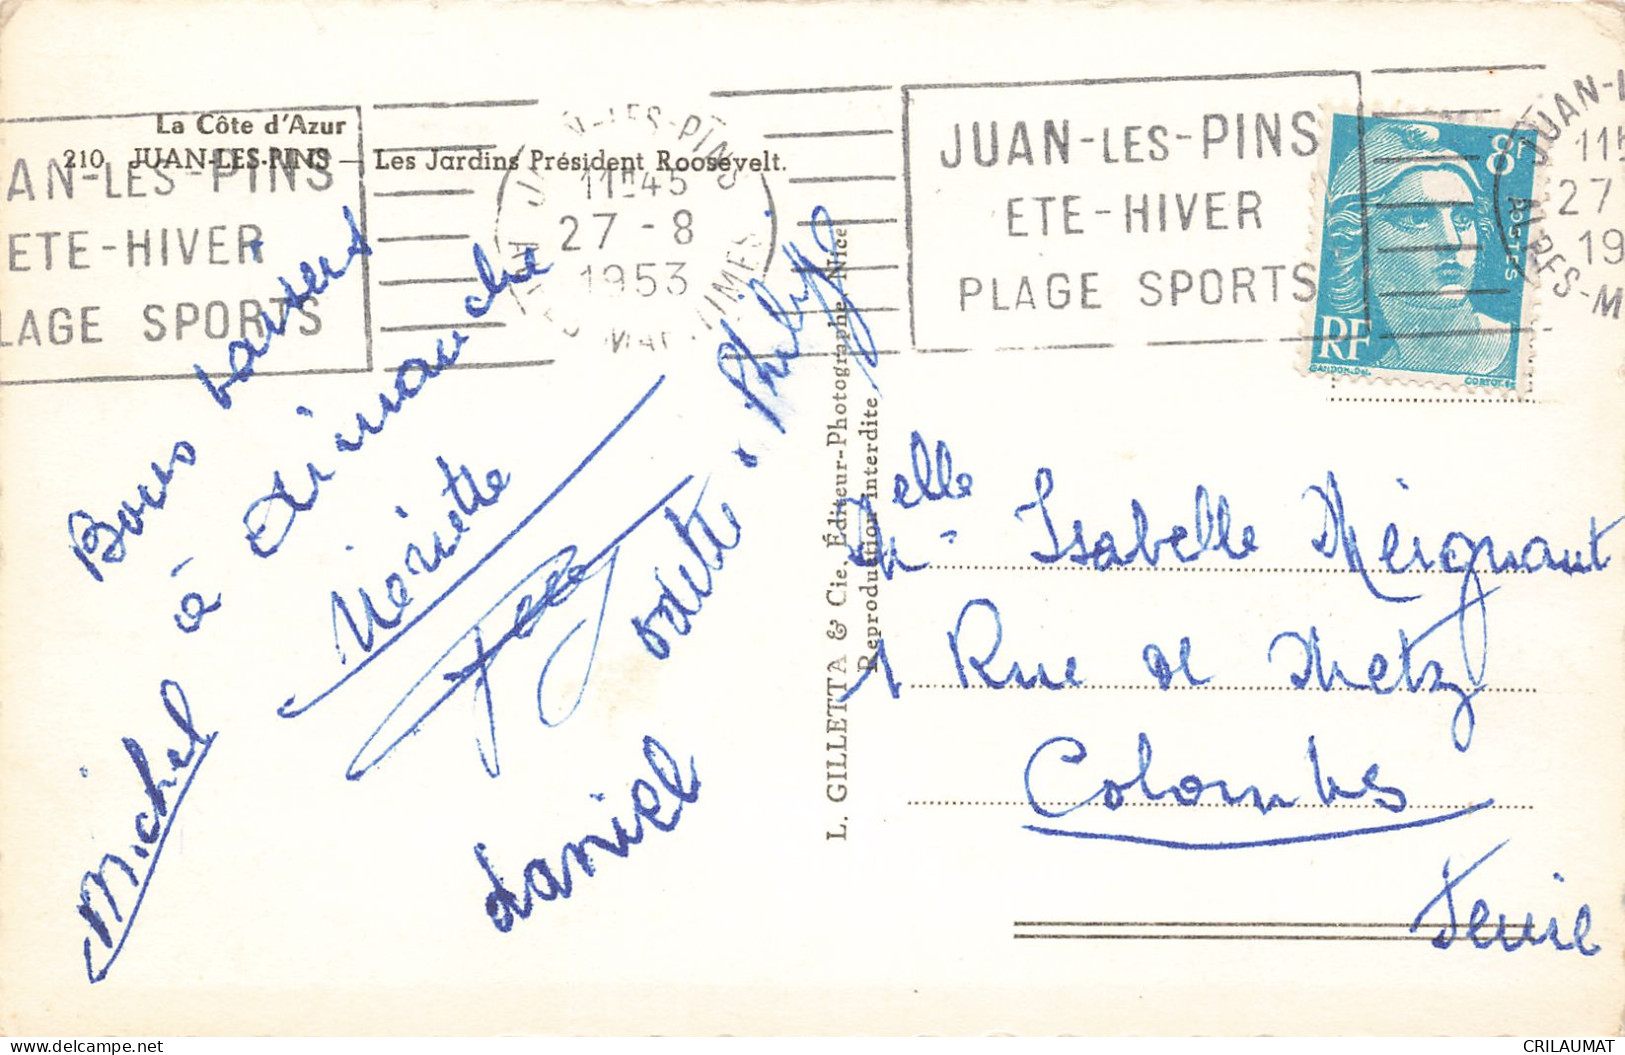 La Côte d'Azur
210 JUAN-LES-PINS — Les Jardins Président Roosevelt.
AN-LES-PINS
ETE-HIVER
LAGE SPORTS
JUAN-LES-PINS
11H45
27-8
1953
ALPES-MARITIMES
JUAN-LES-PINS
ETE-HIVER
PLAGE SPORTS
8F
POSTES
RF
GANDON-Del.
CORTOT-Sc
JUAN-L
115
27
19
Bons baisers
à dimanche
Michel
daniel
L. GILLETTA & Cie, Éditeur-Photographe, Nice
Reproduction interdite
Melle Isabelle Meignant
1 Rue de Metz
Colombes
Seine
CRILAUMAT